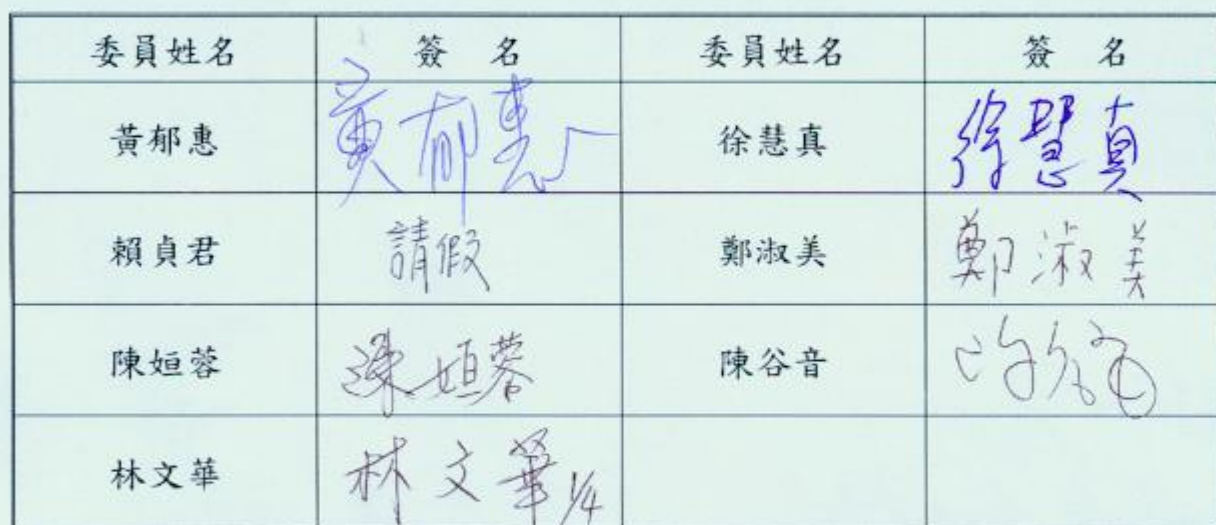 委員姓名 簽 名 委員姓名 簽 名
黃郁惠 黃郁惠 徐慧真 徐慧真
賴貞君 請假 鄭淑美 鄭淑美
陳姮蓉 陳姮蓉 陳谷音
林文華 林文華 1/4